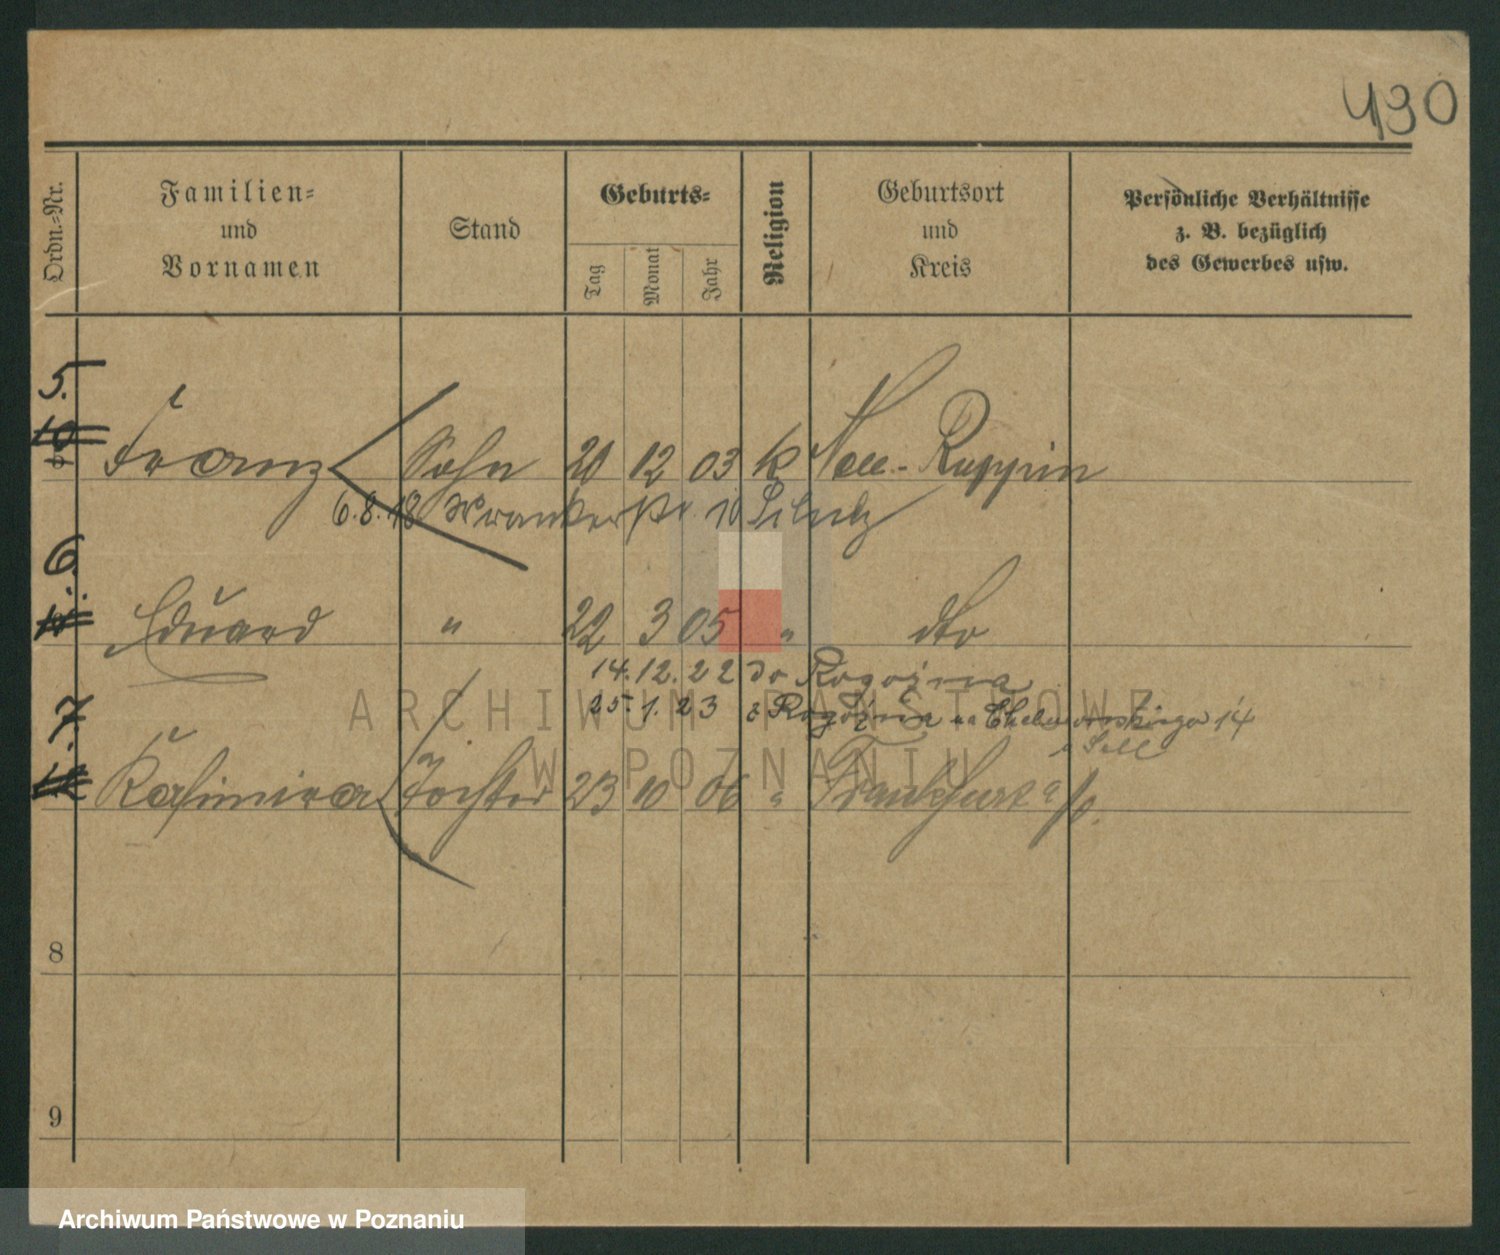 490
Ordn.-Nr.
Familien-
und
Vornamen
Stand
Geburts-
Tag
Monat
Jahr
Religion
Geburtsort
und
Kreis
Persönliche Verhältnisse
z. B. bezüglich
des Gewerbes usw.
5.
10
Franz Sohn 20 12 03 k Neu-Ruppin
6.8.18 Wronkerstr. 10
6.
11
Eduard " 22 3 05 " dto
14.12.22 do Rogoźna
25.1.23 z Rogoźna na 14
7.
12
Kasimira Tochter 23 10 06 " Frankfurt a/o.
8
9
ARCHIWUM PAŃSTWOWE
W POZNANIU
Archiwum Państwowe w Poznaniu